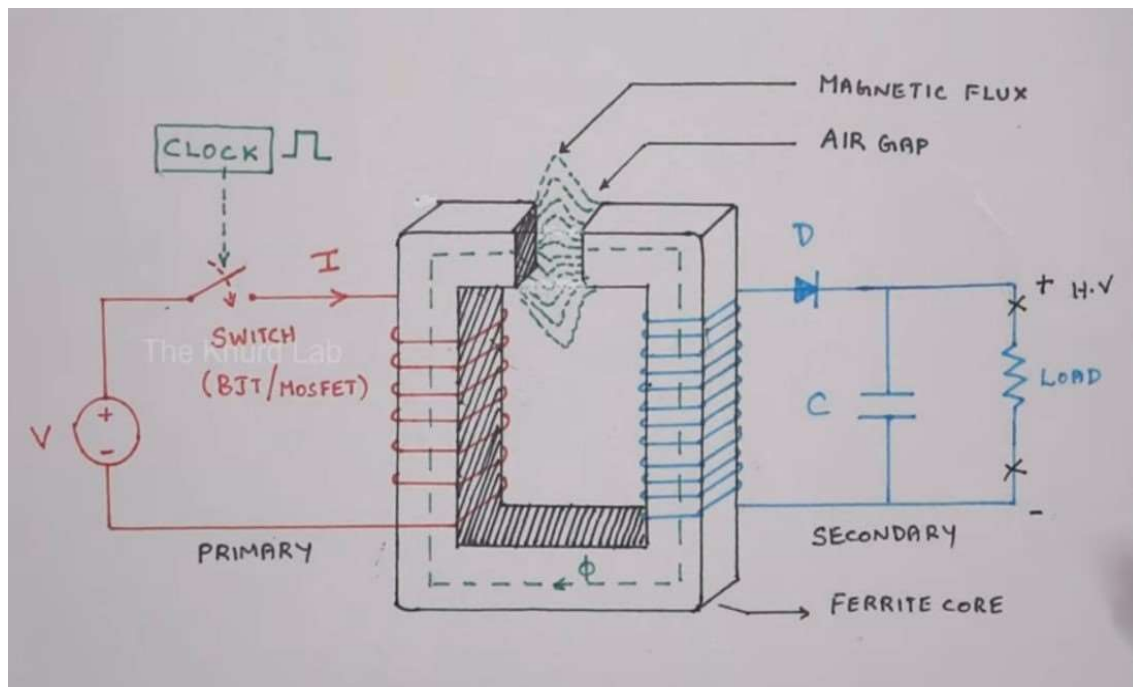 MAGNETIC FLUX
AIR GAP
CLOCK
I
D
+ H.V
SWITCH
(BJT/MOSFET)
The Khurd Lab
V
+
-
C
LOAD
PRIMARY
SECONDARY
-
ϕ
FERRITE CORE